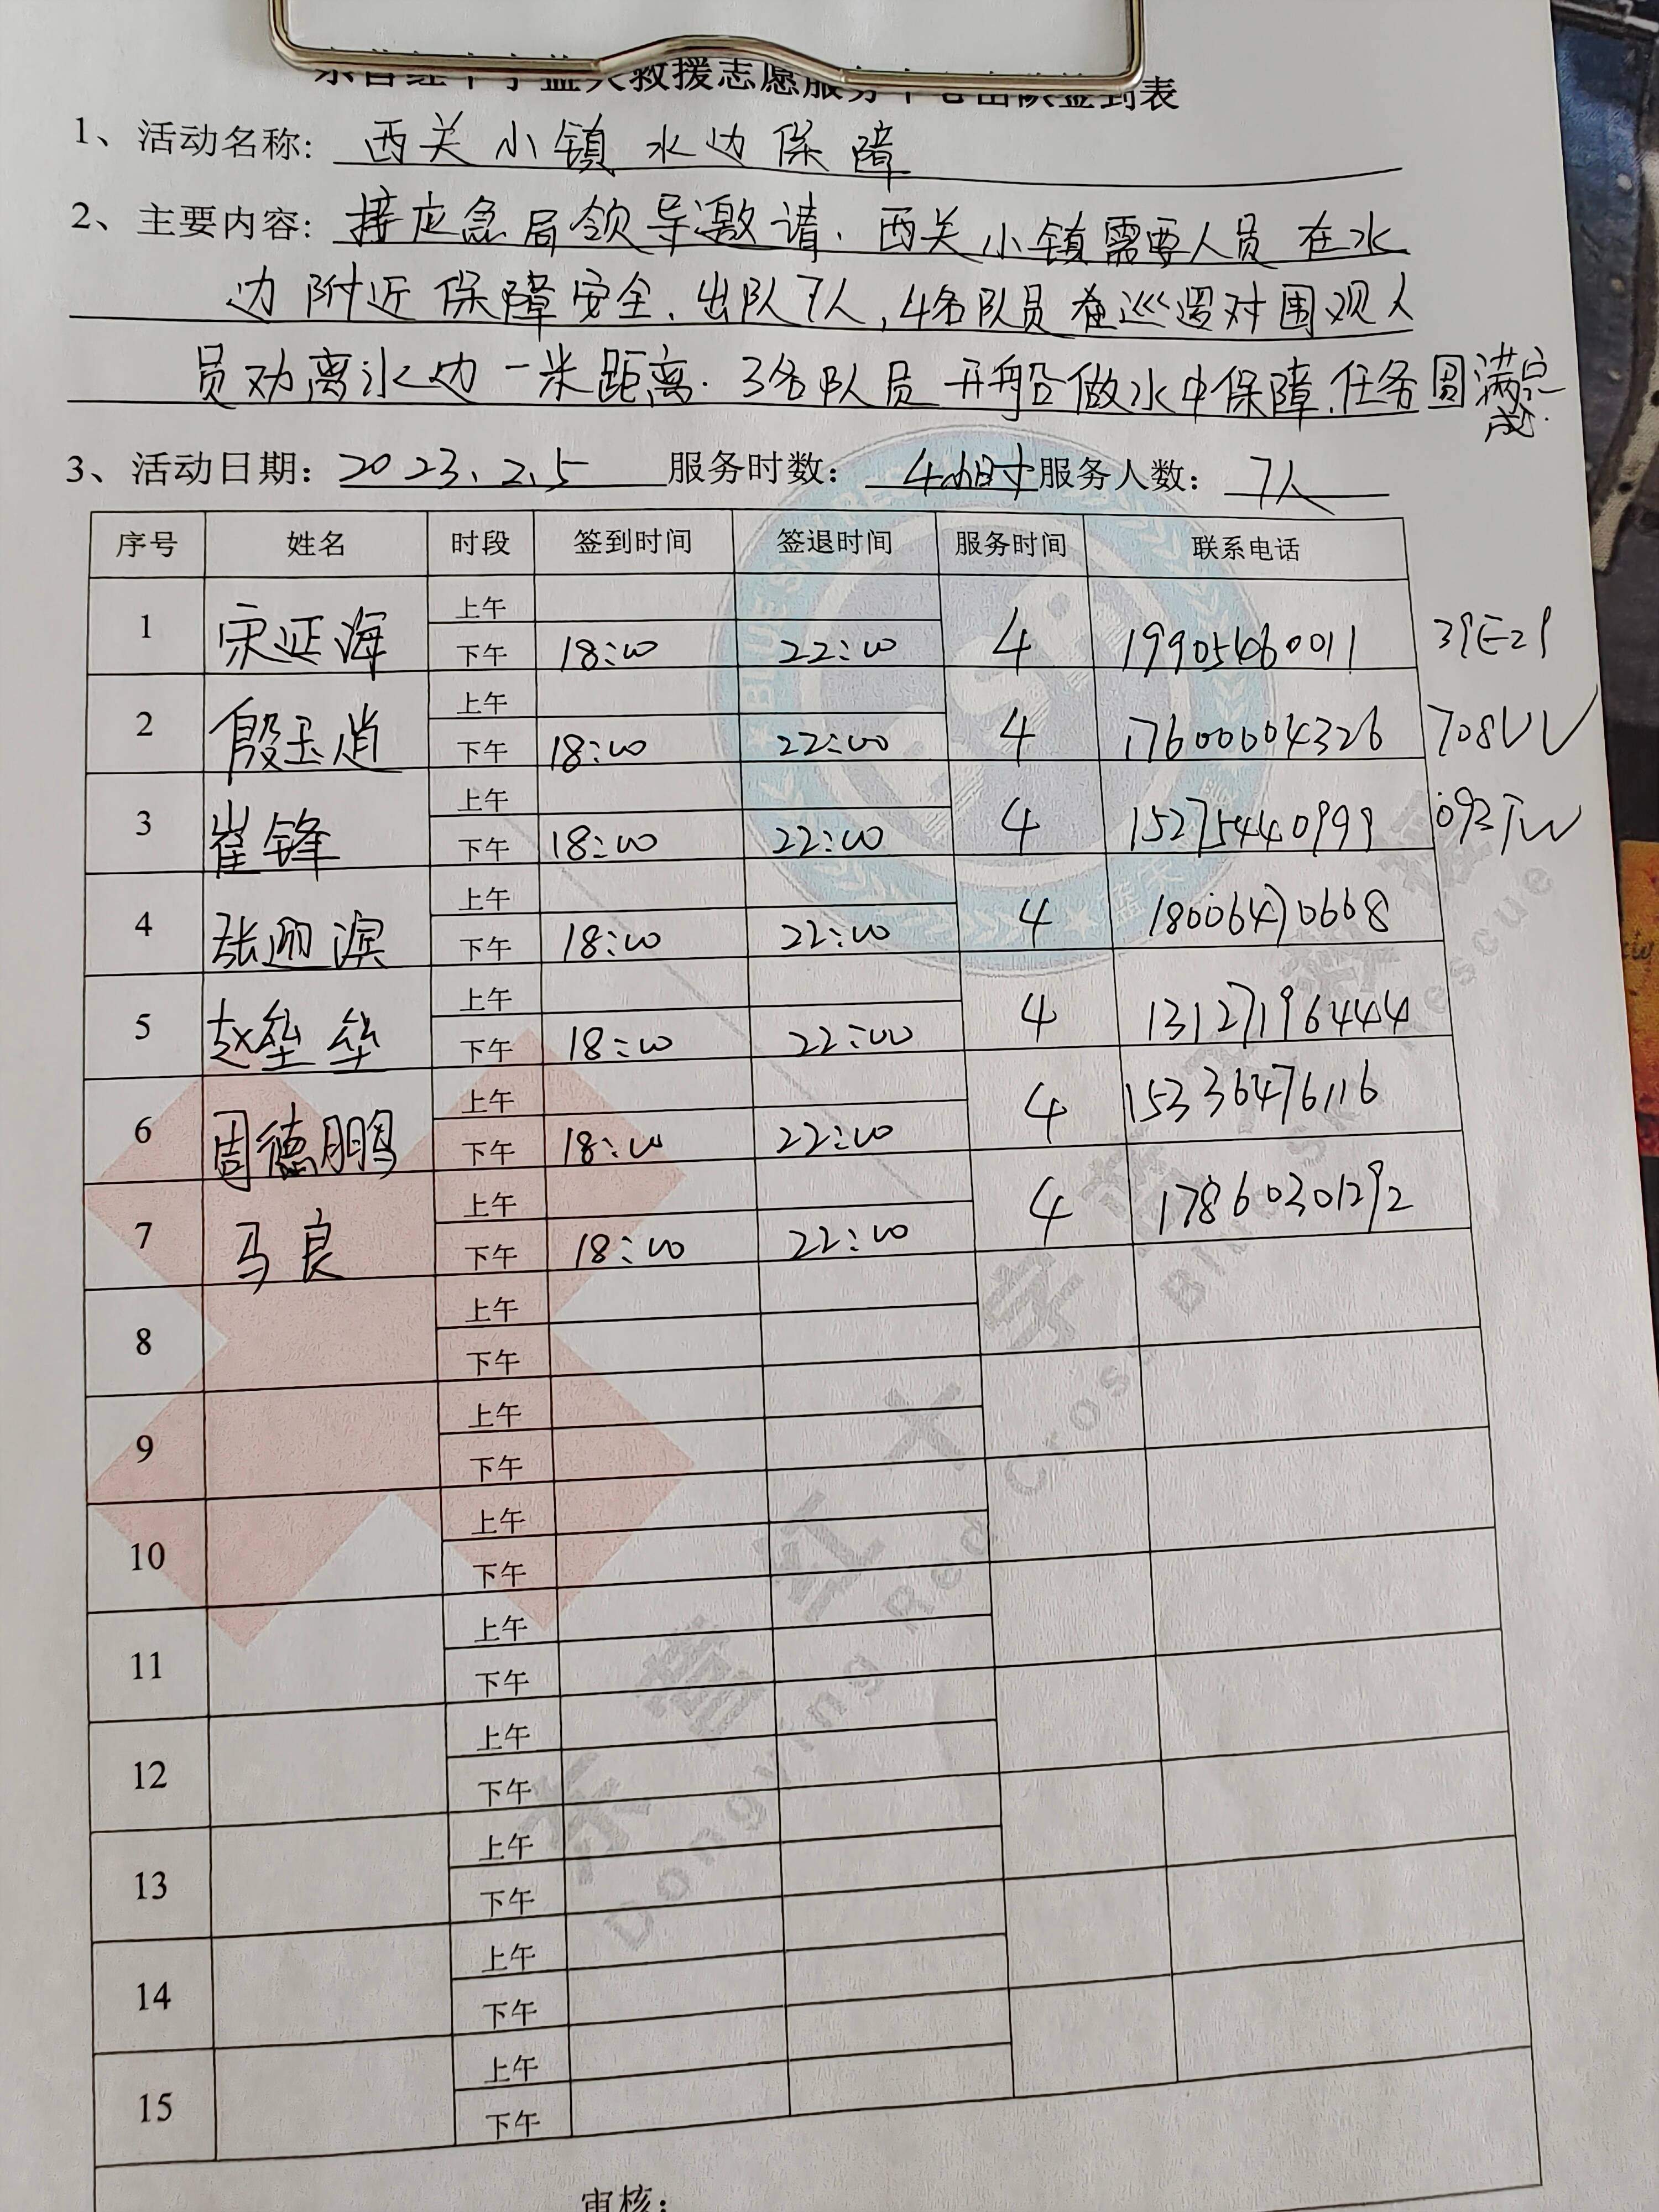 东营红十字蓝天救援志愿服务中心出队签到表
1、活动名称: 西关小镇水边保障
2、主要内容: 接应急局领导邀请.西关小镇需要人员在水
边附近保障安全.出队7人,4名队员在巡逻对围观人
员劝离水边一米距离.3名队员开船做水中保障.任务圆满完
成.
3、活动日期: 2023.2.5 服务时数: 4小时 服务人数: 7人
序号 姓名 时段 签到时间 签退时间 服务时间 联系电话
1 宋延海 上午
下午 18:00 22:00 4 19905460011 39E29
2 殷玉肖 上午
下午 18:00 22:00 4 17600604326 708UV
3 崔锋 上午
下午 18:00 22:00 4 15275440999 093TW
4 张滨 上午
下午 18:00 22:00 4 18006470608
5 赵垒垒 上午
下午 18:00 22:00 4 13127196444
6 周德鹏 上午
下午 18:00 22:00 4 15336476116
7 马良 上午
下午 18:00 22:00 4 17860301292
8 上午
下午
9 上午
下午
10 上午
下午
11 上午
下午
12 上午
下午
13 上午
下午
14 上午
下午
15 上午
下午
审核:
东营红十字蓝天救援
Dongying Red Cross Blue Sky Rescue